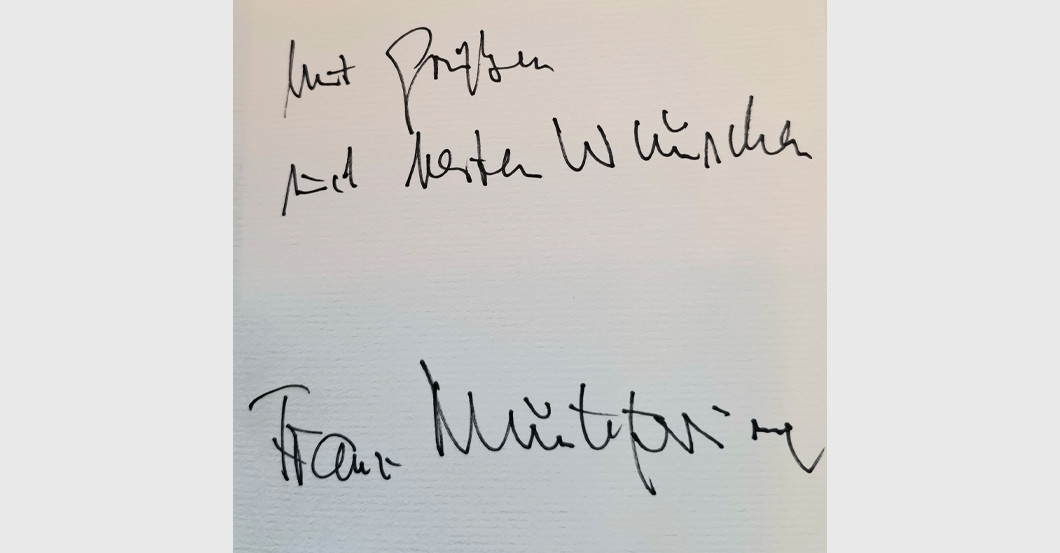 Mit Grüßen
und besten Wünschen
Franz Müntefering